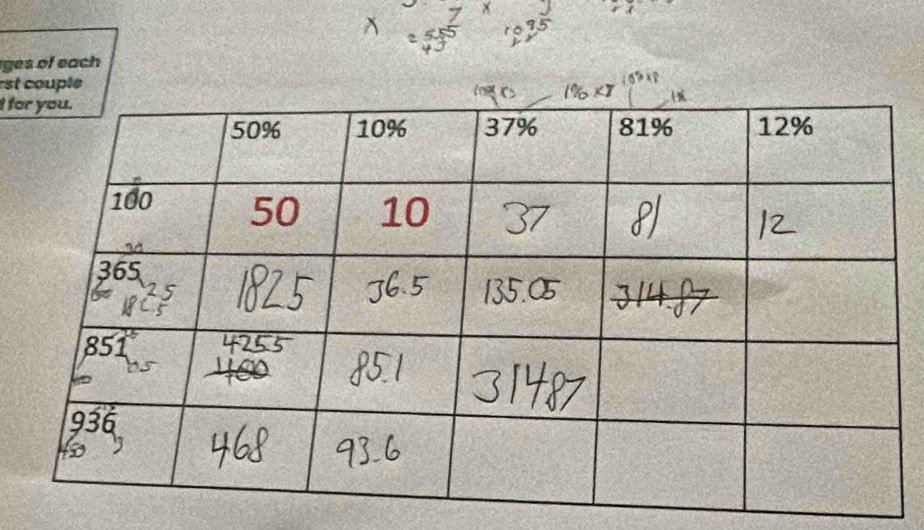 x 7 x
2555 1095
ges of each
rst couple
d for you.
1% x7
50% 10% 37% 81% 12%
100 50 10 37 81 12
365 1825 36.5 135.05 314.87
182.5
851 425.5 85.1 31487
400
936 468 93.6
450 3